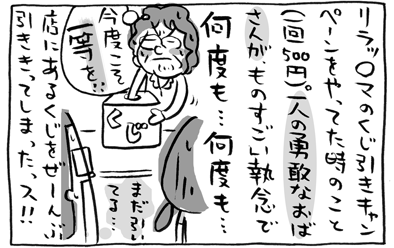 リラッ〇マのくじ引きキャン
ペーンをやってた時のこと
(一回500円)。一人の勇敢なおば
さんが、ものすごい執念で
何度も…何度も…
今度こそ、
一等を…
くじ
まだ引い
てる…
店にあるくじをぜーんぶ
引ききってしまったっス!!